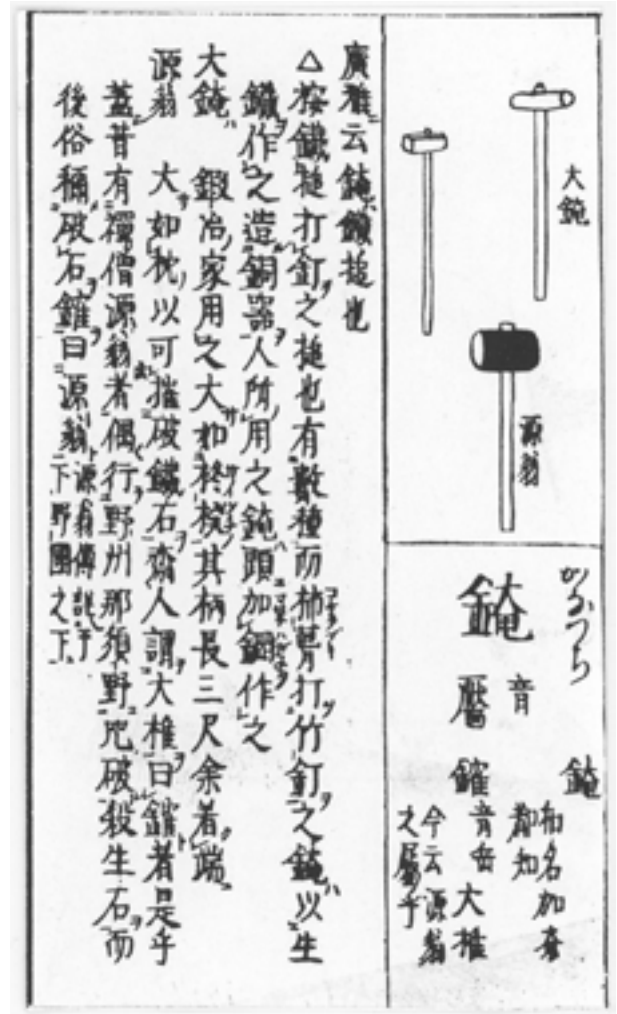 大鉋
源翁
かなつち
鉋
音
饜
鉋
和名加奈
都知
鑵
音岳
大椎
今云源翁
之屬乎
廣雅云鉋鐵搥也
△按鐵搥打釘之搥也有數種而柹葺打竹釘之鉋以生
鐵作之造銅器人所用之鉋頭加鋼作之
大鉋 鍛冶家用之大如柊楑其柄長三尺余者端
源翁 大如枕以可摧破鐵石齊人謂大椎曰鑵者是乎
蓋昔有禪僧源翁者偶行野州那須野咒破殺生石而
後俗稱破石鎚曰源翁
源翁傳說于
下野國之下